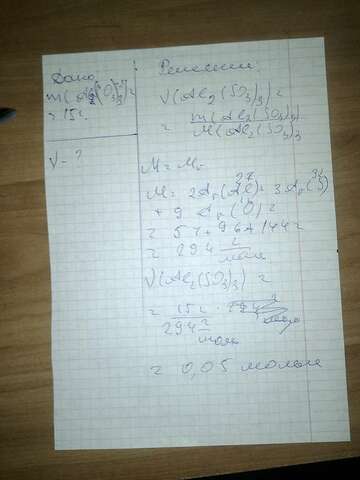 Дано:
m(Al2(SO3)3) =
= 15 г
ν - ?
Решение:
ν(Al2(SO3)3) =
= m(Al2(SO3)3)
M(Al2(SO3)3
M = Mr
27 32
M = 2Ar(Al) + 3Ar(S)
+ 9 Ar(O) =
= 54 + 96 + 144 =
= 294 г
моль
ν(Al2(SO3)3) =
= 15 г
294 г
моль
= 0,05 моль